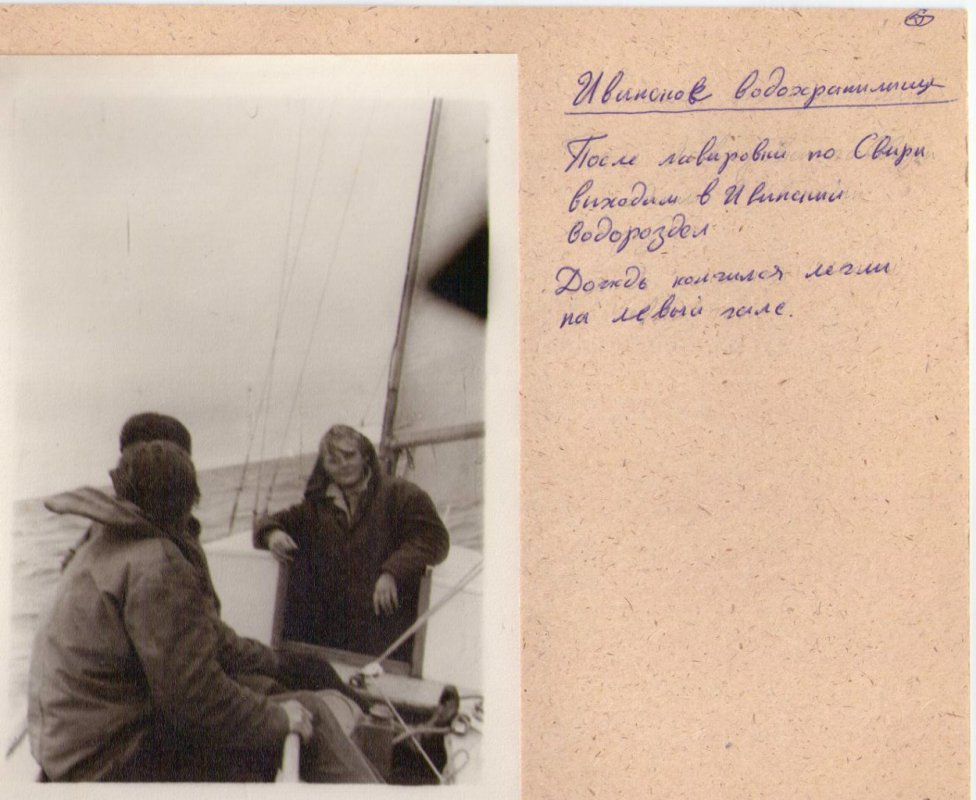 Ивинское водохранилище
После лавировки по Свири
выходим в Ивинский
водораздел
Дождь кончился легли
на левый галс.